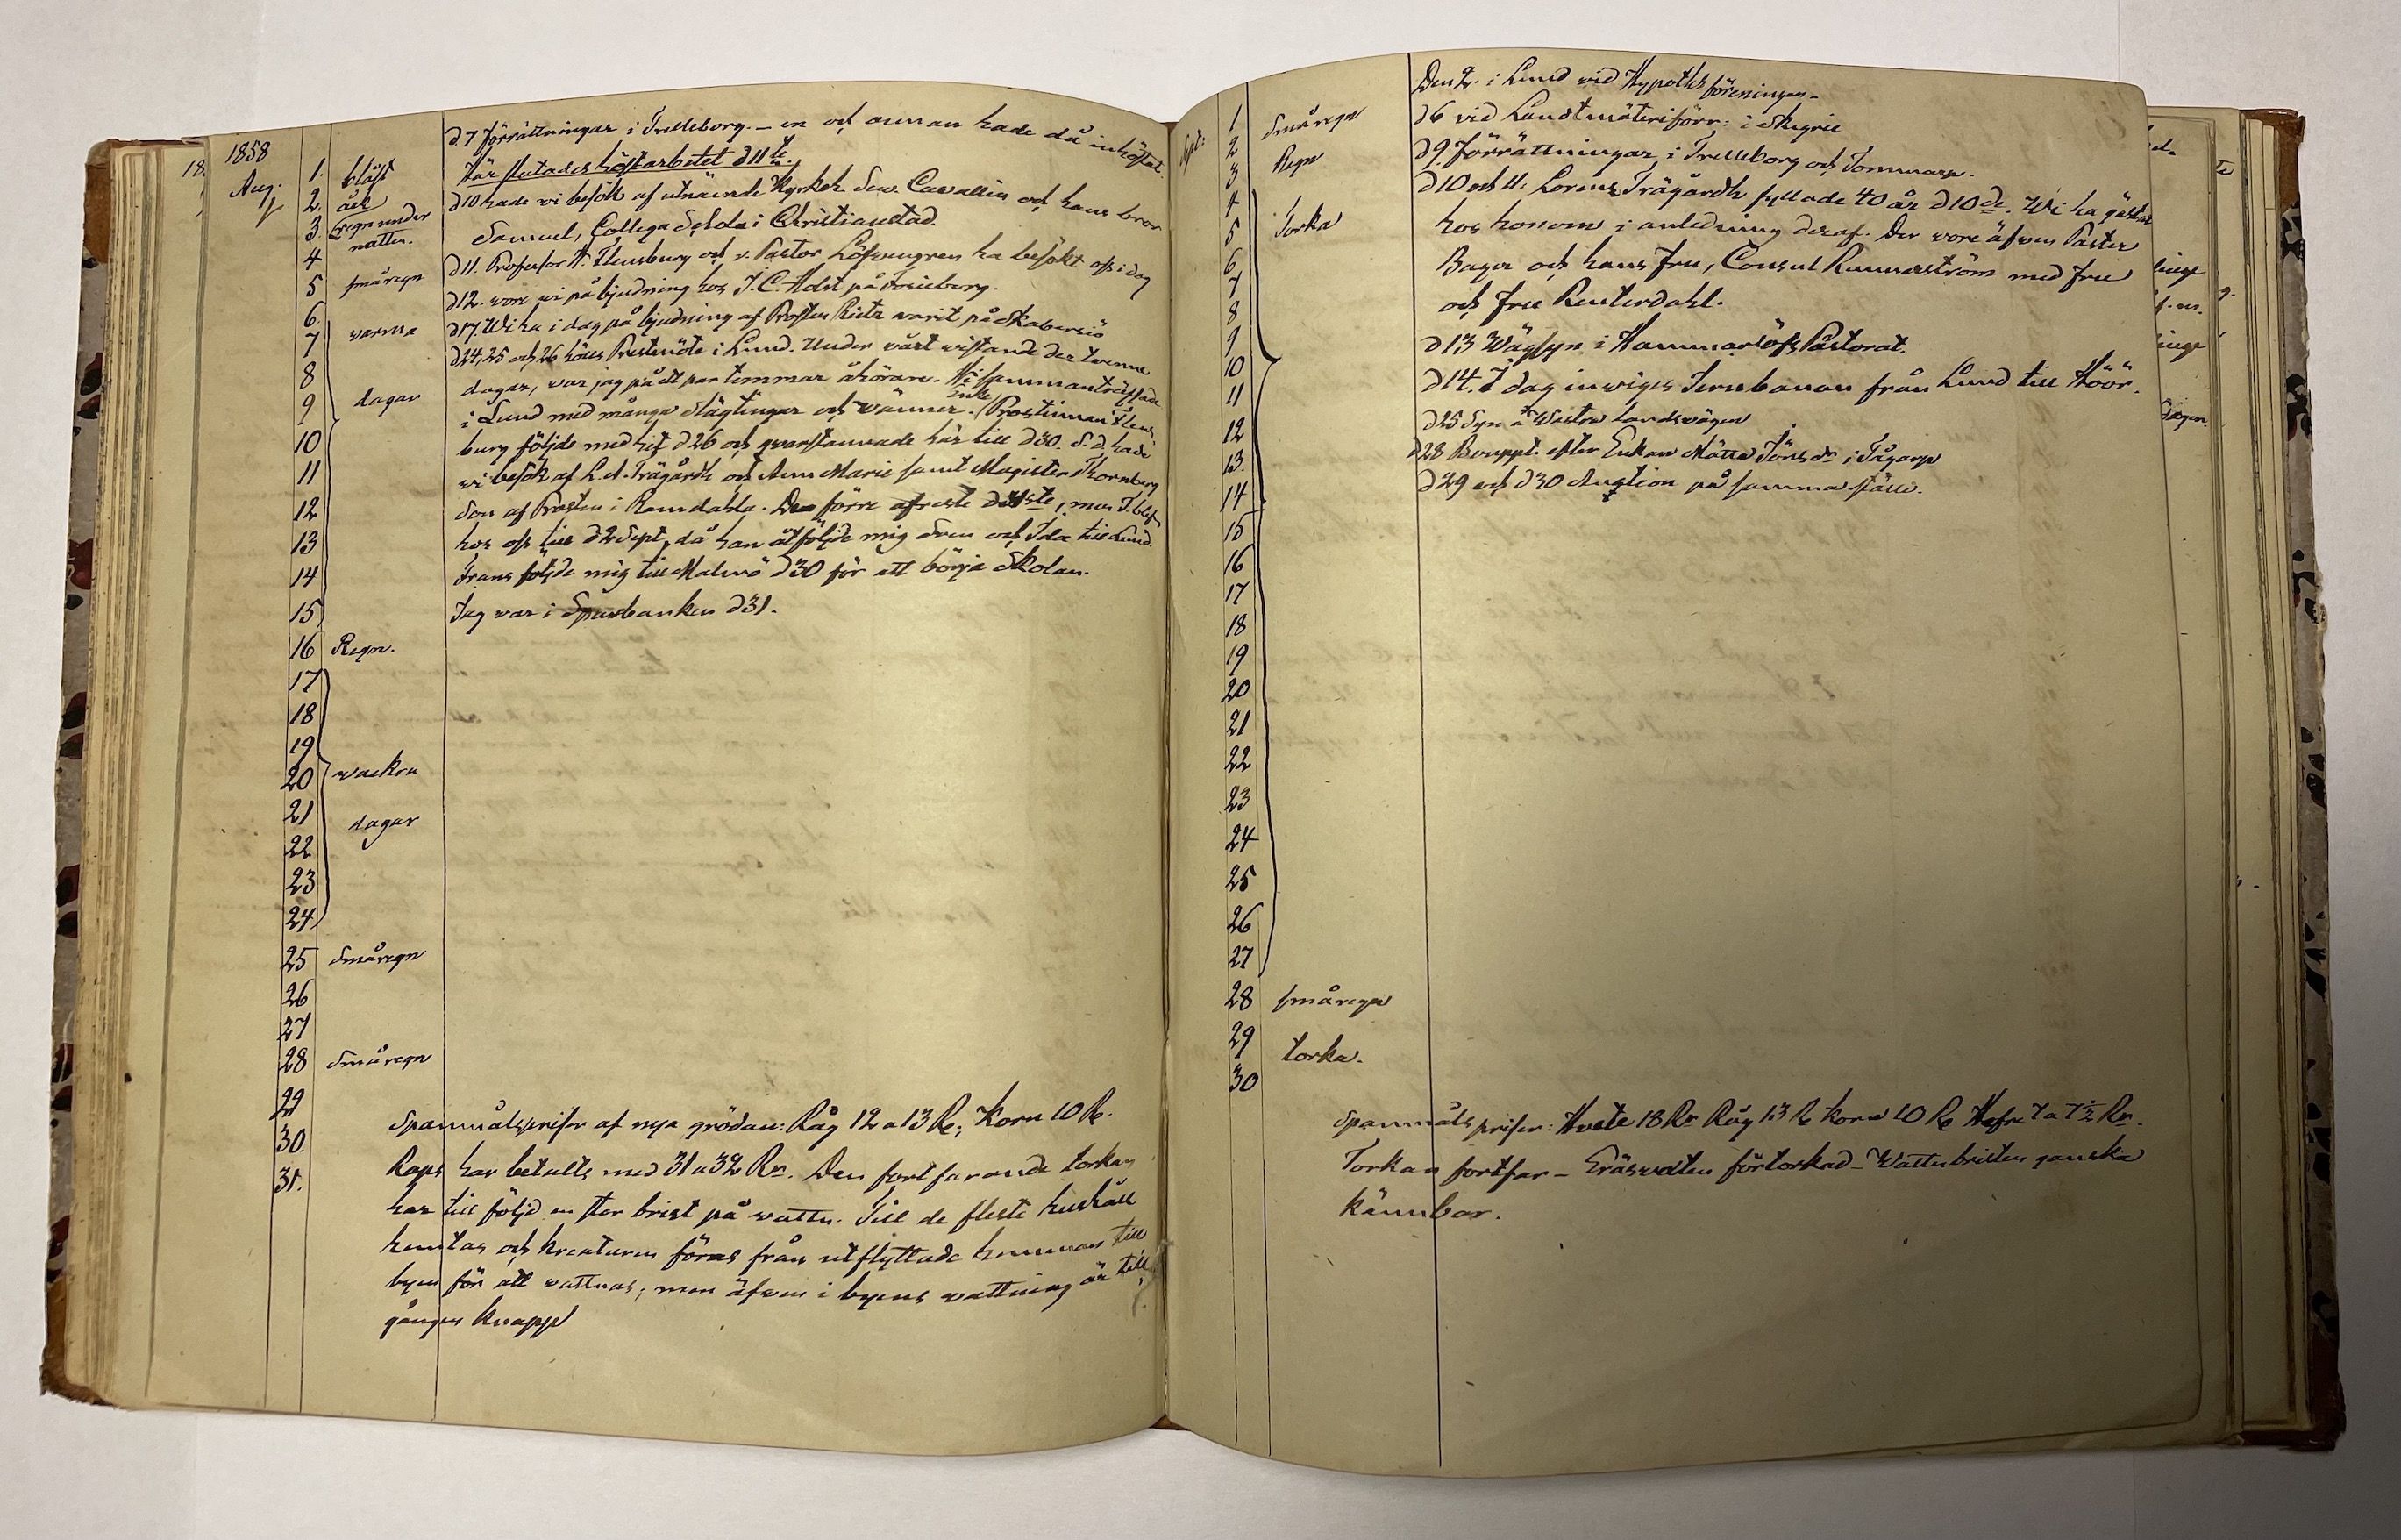 1858
Aug.
1. blåst
2. åsk
3. regn under
natten.
4
5 småregn
6.
7 warma
8
9 dagar
10
11
12
13
14
15
16 Regn.
17
18
19
20 wackra
21 dagar
22
23
24
25 Småregn
26
27
28 Småregn
29
30.
31.
d. 7 Förrättningar i Trelleborg. – en och annan hade då inhöstat.
Här slutades höstarbetet d 11te.
d 10 hade vi besök af utnämnde Kyrkoh. Sew. Cavallin och hans bror
Samuel, Collega Schola i Christianstad.
d 11. Professor W. Flensburg och v. Pastor Löfvengren ha besökt oss i dag
d 12. wore vi på bjudning hos J. C. Holst på Fosieborg.
d 17. Wi ha i dag på bjudning af Prosten Rietz varit på Skabersjö
d 24, 25 och 26 hölls Prestmöte i Lund. Under vårt wistande der twenne
dagar, war jag på ett par timmar åhörare. Wi sammanträffade
i Lund med många Slägtingar och wänner. Enke Prostinnan Flens-
burg följde med hit d 26 och qwarstannade här till d 30. S. d. hade
wi besök af L. A. Trägårdh och Ann Marie samt Magister Thornberg
Son af Prosten i Ramdahla. Den förre afreste d 31ste, men T. blef
hos oss till d 2 Sept. då han åtföljde mig Sven och Ida till Lund.
Frans följde mig till Malmö d 30 för att börja Skolan.
Jag var i Sparbanken d 31.
Spanmålspriser af nya grödan: Råg 12 a 13 Rr; Korn 10 Rr.
Raps har betalts med 31 a 32 Rr. Den fortfarande torkan
har till följd en stor brist på wattn. Till de fleste hushåll
hemtas och kreaturen föras från utflyttade hemman till
byen för att wattnas; men äfwen i byens wattning är till-
gången knapp
Sept:
1 Småregn
2
3 Regn
4
5 Torka
6
7
8
9
10
11
12
13.
14
15
16
17
18
19
20
21
22
23
24
25
26
27
28 småregn
29 torka.
30
Den 2. i Lund vid Hypoteksföreningen –
d 6 vid Landtmäteriförr: i Skegrie
d 9. Förrättningar i Trelleborg och Tommarp.
d 10 och 11. Lorens Trägårdh fyllade 40 år d 10de. Wi ha gästat
hos honom i anledning deraf. Der wore äfwen Pastor
Bager och hans Fru, Consul Runnerström med Fru
och Fru Reuterdahl.
d 13 Wägsyn i Hammarlöfs Pastorat.
d 14. I dag inwiges Jernbanan från Lund till Höör.
d 25 Syn å Westra Landswägen
d 28 Bouppt. efter Enkan Mätta Jöns dr i Tågarp
d 29 och d 30 Auction på samma ställe.
Spanmåls priser: Hvete 18 Rr Råg 13 Rr Korn 10 Rr Hafre 7 a 7½ Rr.
Torkan fortfar – Gräswäxten förtorkad – Wattubristen ganska
kännbar.